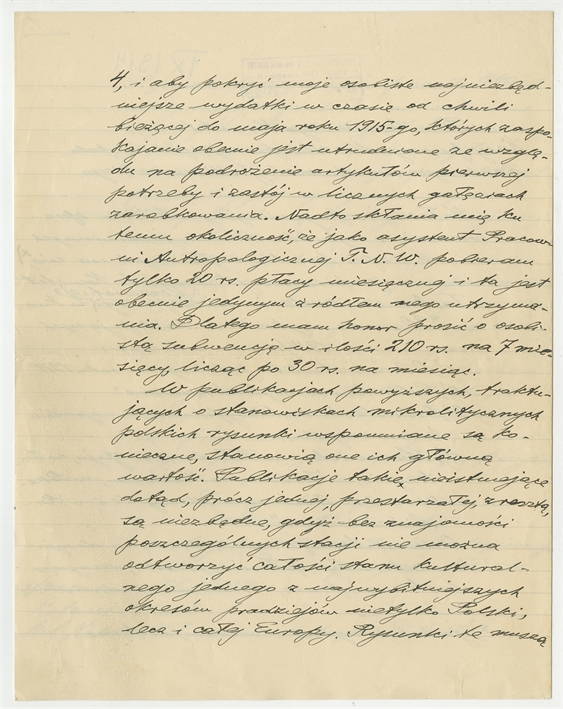 4, i aby pokryć moje osobiste najniezbęd-
niejsze wydatki w czasie od chwili
bieżącej do maja roku 1915-go, których zaspo-
kajanie obecnie jest utrudnione ze wzglę-
du na podrożenie artykułów pierwszej
potrzeby i zastój w licznych gałęziach
zarobkowania. Nadto skłania mię ku
temu okoliczność, że jako asystent Pracow-
ni Antropologicznej T. N. W. pobieram
tylko 20 rs. płacy miesięcznej i ta jest
obecnie jedynym źródłem mego utrzyma-
nia. Dlatego mam honor prosić o osobi-
stą subwencję w ilości 210 rs. na 7 mie-
sięcy, licząc po 30 rs. na miesiąc.
W publikacjach powyższych, traktu-
jących o stanowiskach mikrolitycznych
polskich rysunki wspomniane są ko-
nieczne, stanowią one ich główną
wartość. Publikacje takie, nieistniejące
dotąd, prócz jednej, przestarzałej zresztą,
są niezbędne, gdyż bez znajomości
poszczególnych stacji nie można
odtworzyć całości stanu kultural-
nego jednego z najwybitniejszych
okresów pradziejów nietylko Polski,
lecz i całej Europy. Rysunki te muszą